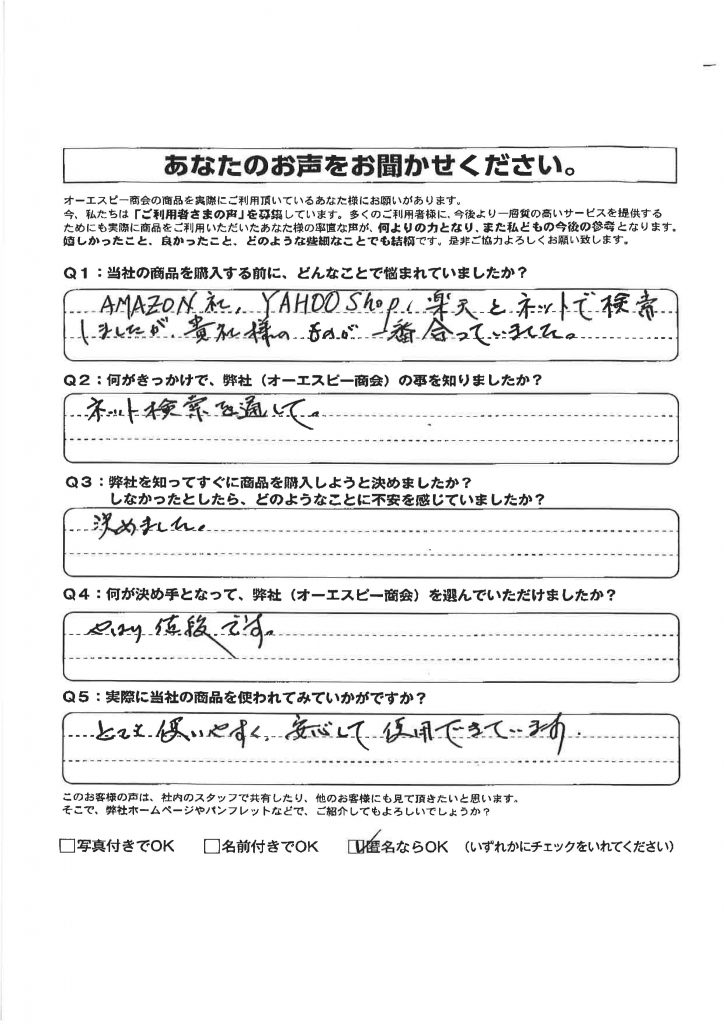 あなたのお声をお聞かせください。
オーエスピー商会の商品を実際にご利用頂いているあなた様にお願いがあります。
今、私たちは「ご利用者さまの声」を募集しています。多くのご利用者様に、今後より一層質の高いサービスを提供する
ためにも実際に商品をご利用いただいたあなた様の率直な声が、何よりの力となり、また私どもの今後の参考となります。
嬉しかったこと、良かったこと、どのような些細なことでも結構です。是非ご協力よろしくお願い致します。
Q1：当社の商品を購入する前に、どんなことで悩まれていましたか？
AMAZON社、YAHOO Shop、楽天とネットで検索
しましたが、貴社様のものが一番合っていました。
Q2：何がきっかけで、弊社（オーエスピー商会）の事を知りましたか？
ネット検索を通して。
Q3：弊社を知ってすぐに商品を購入しようと決めましたか？
しなかったとしたら、どのようなことに不安を感じていましたか？
決めました。
Q4：何が決め手となって、弊社（オーエスピー商会）を選んでいただけましたか？
やはり値段です。
Q5：実際に当社の商品を使われてみていかがですか？
とても使いやすく、安心して使用できています。
このお客様の声は、社内のスタッフで共有したり、他のお客様にも見て頂きたいと思います。
そこで、弊社ホームページやパンフレットなどで、ご紹介してもよろしいでしょうか？
□写真付きでOK □名前付きでOK ☑匿名ならOK （いずれかにチェックをいれてください）